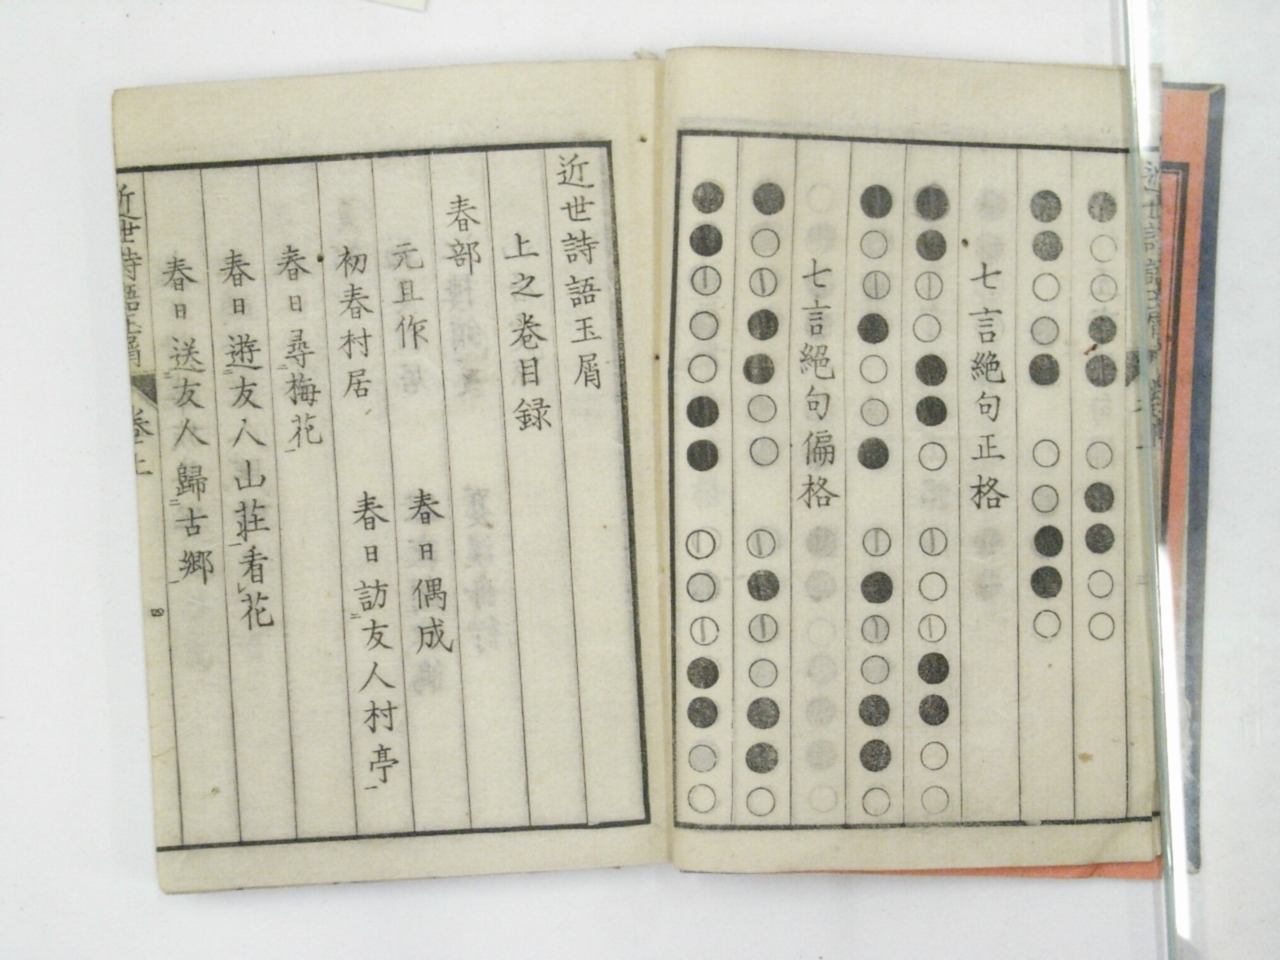 七言絶句正格
七言絕句偏格
近世詩語玉屑
上之卷目録
春部
元旦作
春日偶成
初春村居
春日訪友人村亭
春日尋梅花
春日遊友人山莊看花
春日送友人歸古鄉
近世詩語玉屑
卷之上